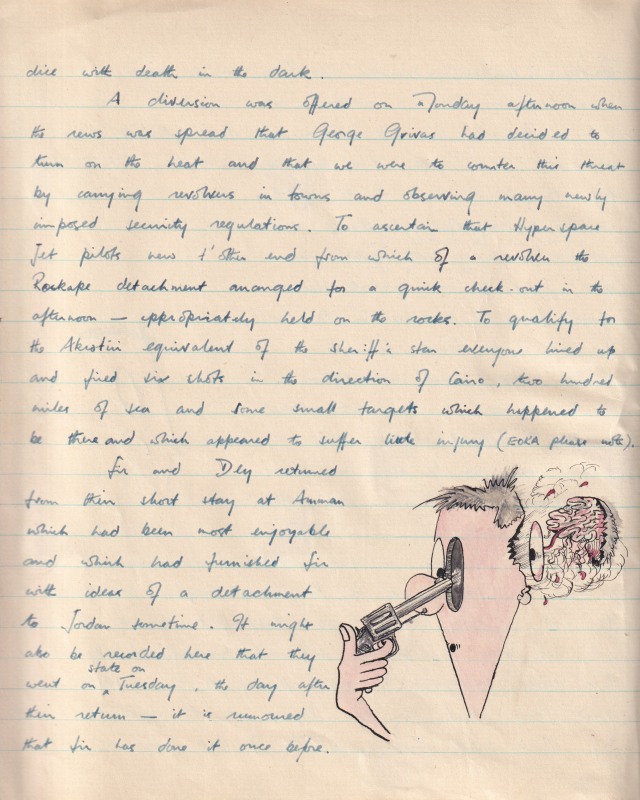 dice with death in the dark.
A diversion was offered on Monday afternoon when
the news was spread that George Grivas had decided to
turn on the heat and that we were to counter this threat
by carrying revolvers in towns and observing many newly
imposed security regulations. To ascertain that Hyperspace
Jet pilots new t'other end from which of a revolver the
Rockape detachment arranged for a quick check-out in the
afternoon — appropriately held on the rocks. To qualify for
the Akrotiri equivalent of the sheriff's star everyone lined up
and fired six shots in the direction of Cairo, two hundred
miles of sea and some small targets which happened to
be there and which appeared to suffer little injury (EOKA please note).
Sir and Dly returned
from their short stay at Amman
which had been most enjoyable
and which had furnished Sir
with ideas of a detachment
to Jordan sometime. It might
also be recorded here that they
went on state on Tuesday, the day after
their return — it is rumoured
that Sir has done it once before.